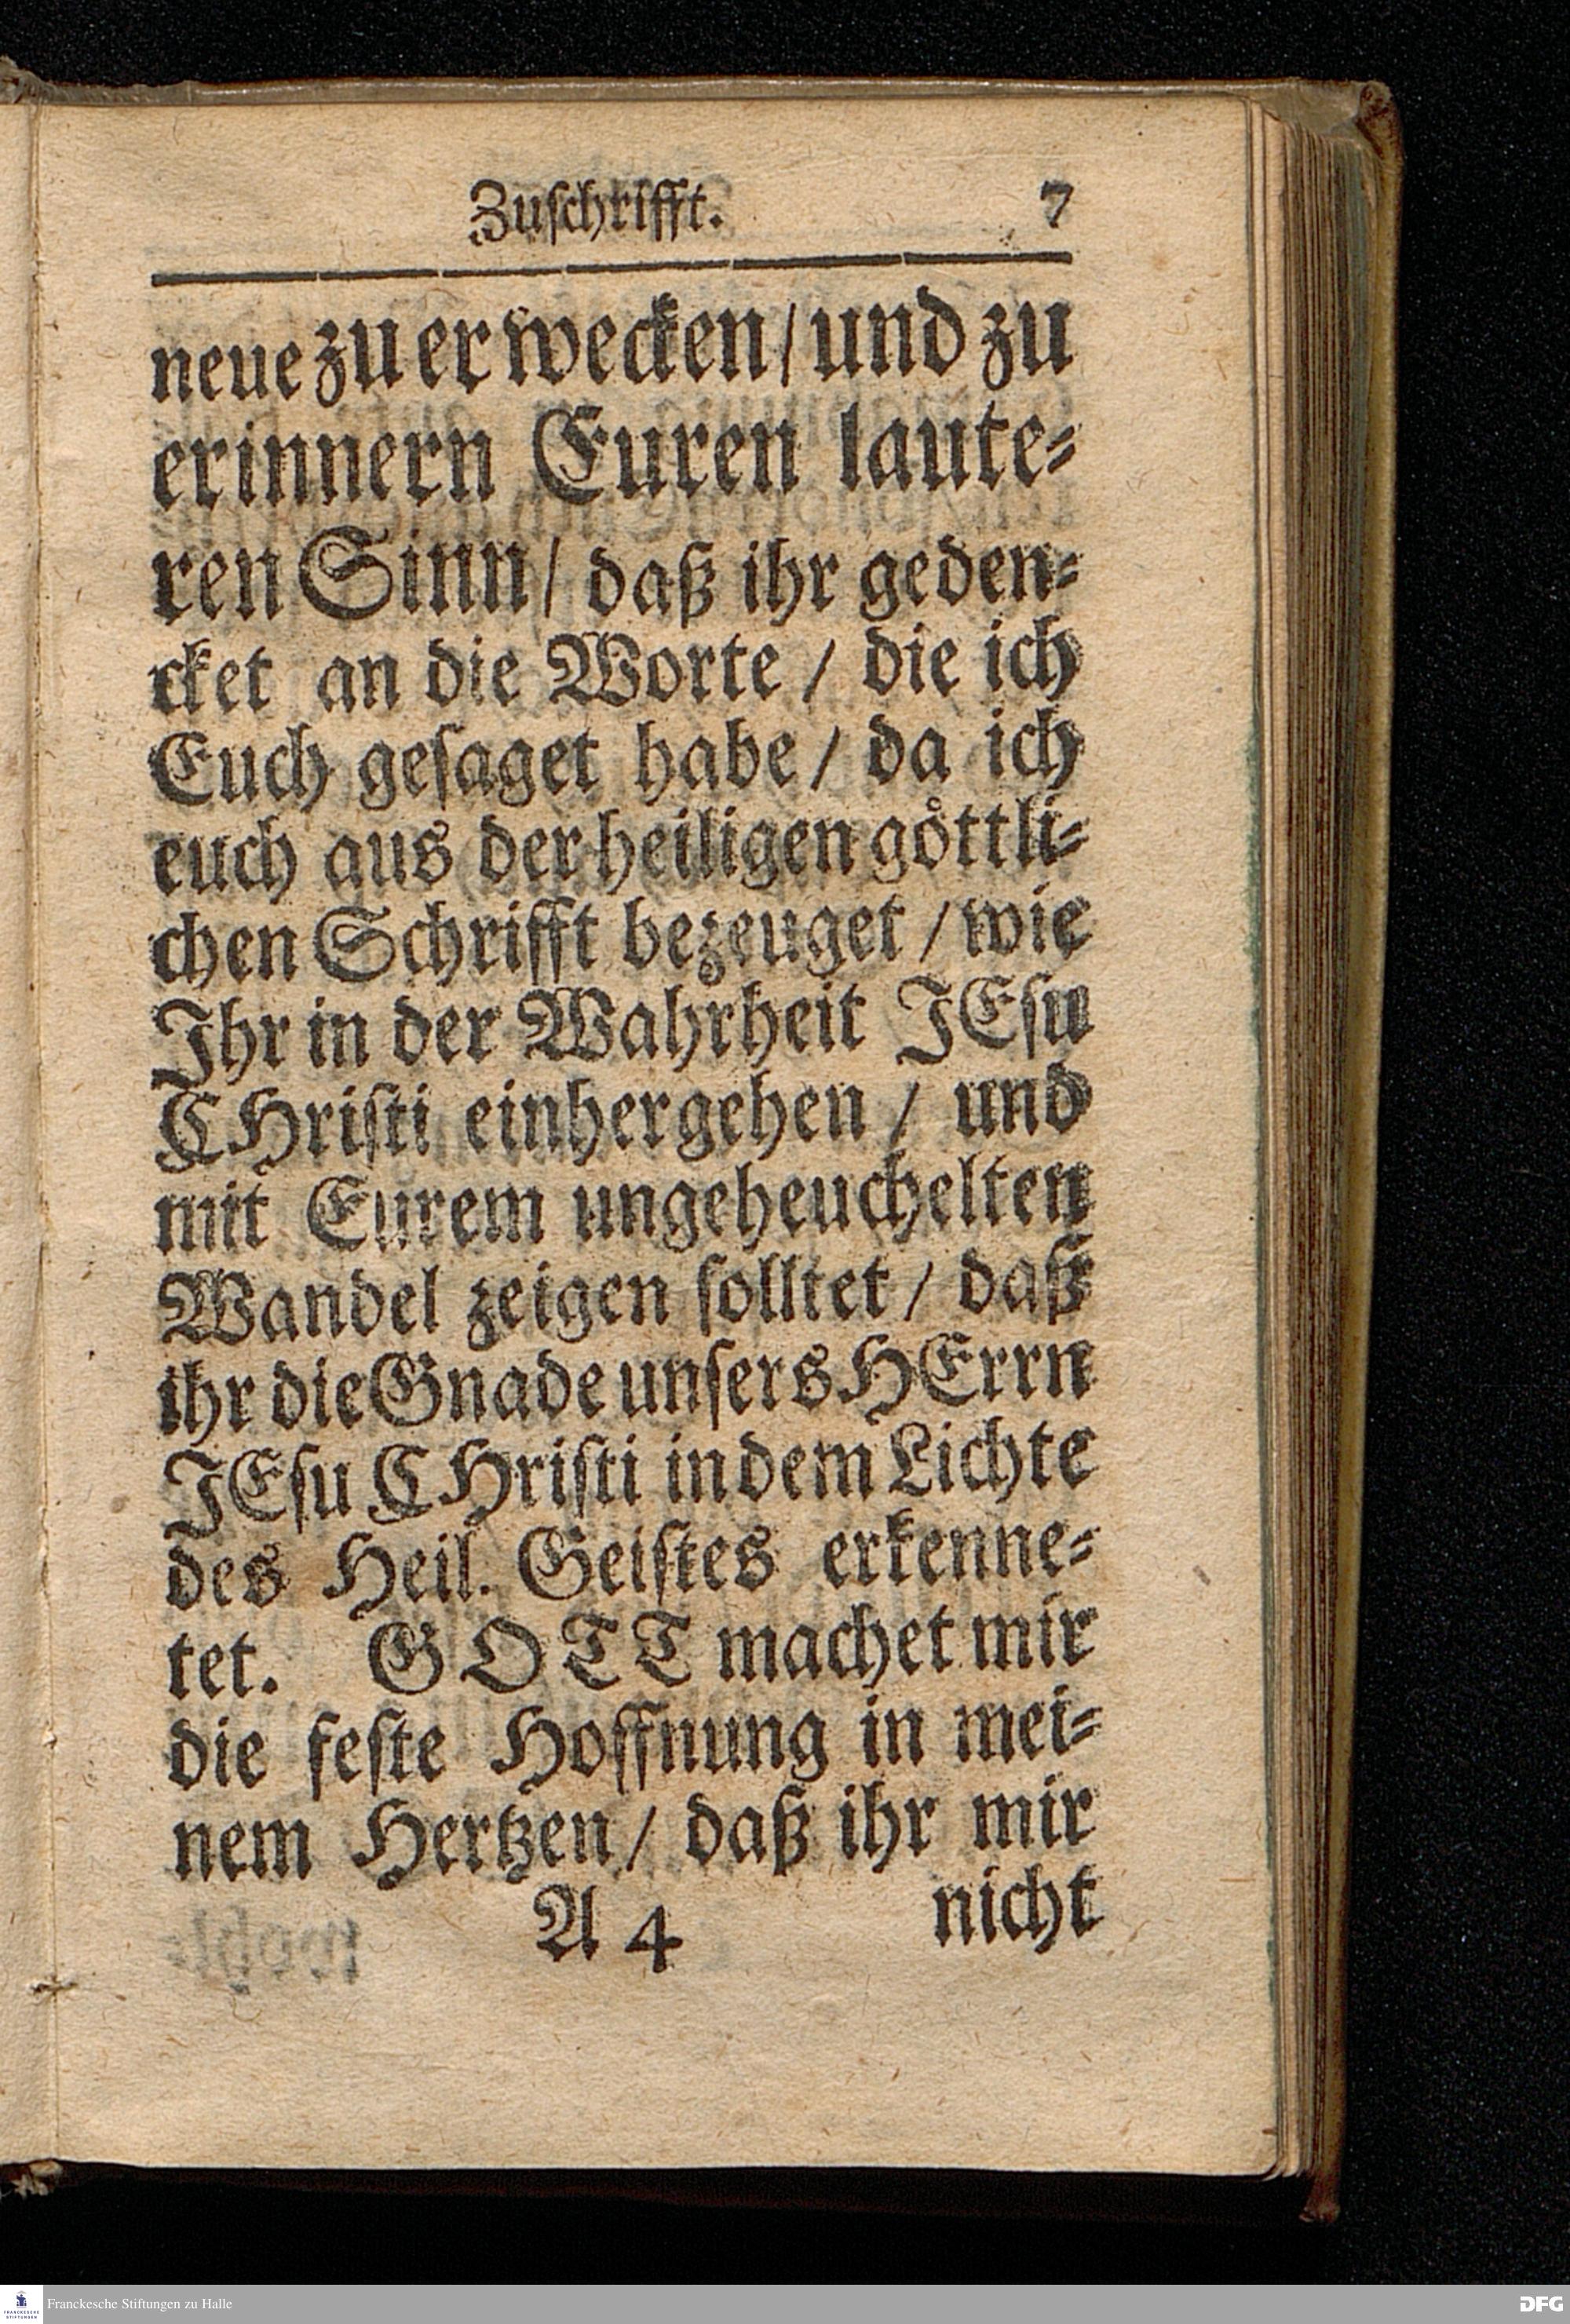 Zuschrifft. 7
neue zu erwecken/ und zu
erinnern Euren laute-
ren Sinn/ daß ihr geden-
cket an die Worte / die ich
Euch gesaget habe/ da ich
euch aus der heiligen göttli-
chen Schrifft bezeuget / wie
Ihr in der Wahrheit JEsu
CHristi einhergehen / und
mit Eurem ungeheuchelten
Wandel zeigen solltet / daß
ihr die Gnade unsers HErrn
JEsu CHristi in dem Lichte
des Heil. Geistes erkenne-
tet. GOTT machet mir
die feste Hoffnung in mei-
nem Hertzen/ daß ihr mir
A 4 nicht
FRANCKESCHE STIFTUNGEN
Franckesche Stiftungen zu Halle
DFG